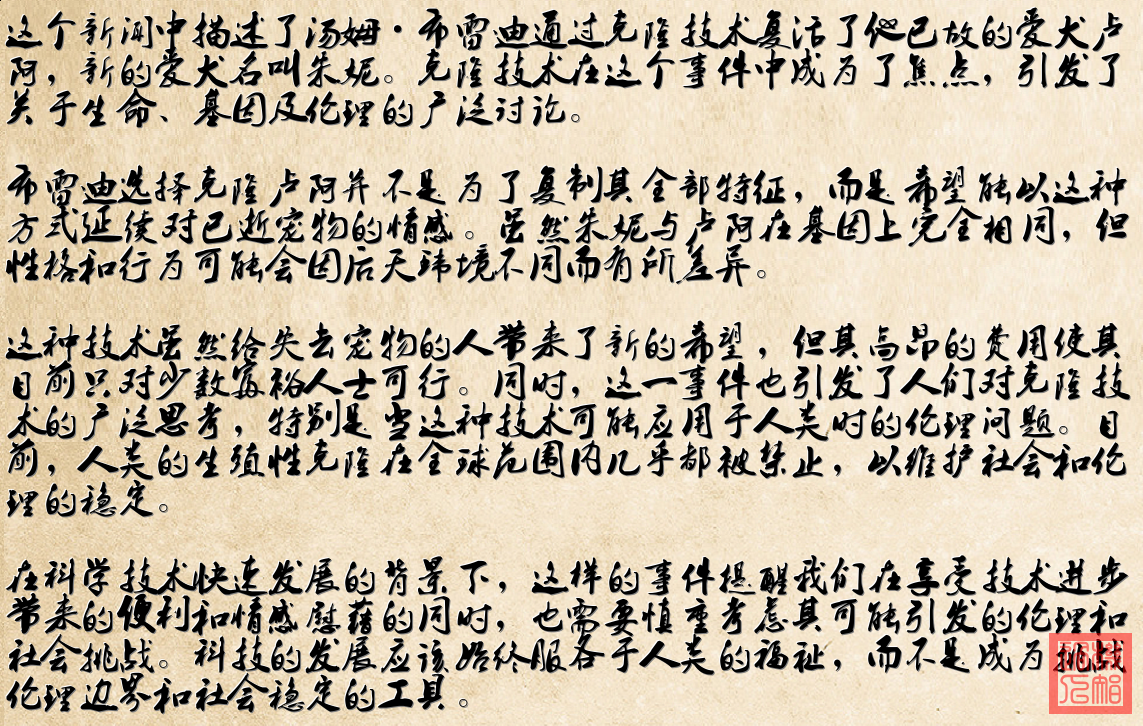 这个新闻中描述了汤姆·布雷迪通过克隆技术复活了他已故的爱犬卢
阿，新的爱犬名叫朱妮。克隆技术在这个事件中成为了焦点，引发了
关于生命、基因及伦理的广泛讨论。
布雷迪选择克隆卢阿并不是为了复制其全部特征，而是希望能以这种
方式延续对已逝宠物的情感。虽然朱妮与卢阿在基因上完全相同，但
性格和行为可能会因后天环境不同而有所差异。
这种技术虽然给失去宠物的人带来了新的希望，但其高昂的费用使其
目前只对少数富裕人士可行。同时，这一事件也引发了人们对克隆技
术的广泛思考，特别是当这种技术可能应用于人类时的伦理问题。目
前，人类的生殖性克隆在全球范围内几乎都被禁止，以维护社会和伦
理的稳定。
在科学技术快速发展的背景下，这样的事件提醒我们在享受技术进步
带来的便利和情感慰藉的同时，也需要慎重考虑其可能引发的伦理和
社会挑战。科技的发展应该始终服务于人类的福祉，而不是成为挑战
伦理边界和社会稳定的工具。